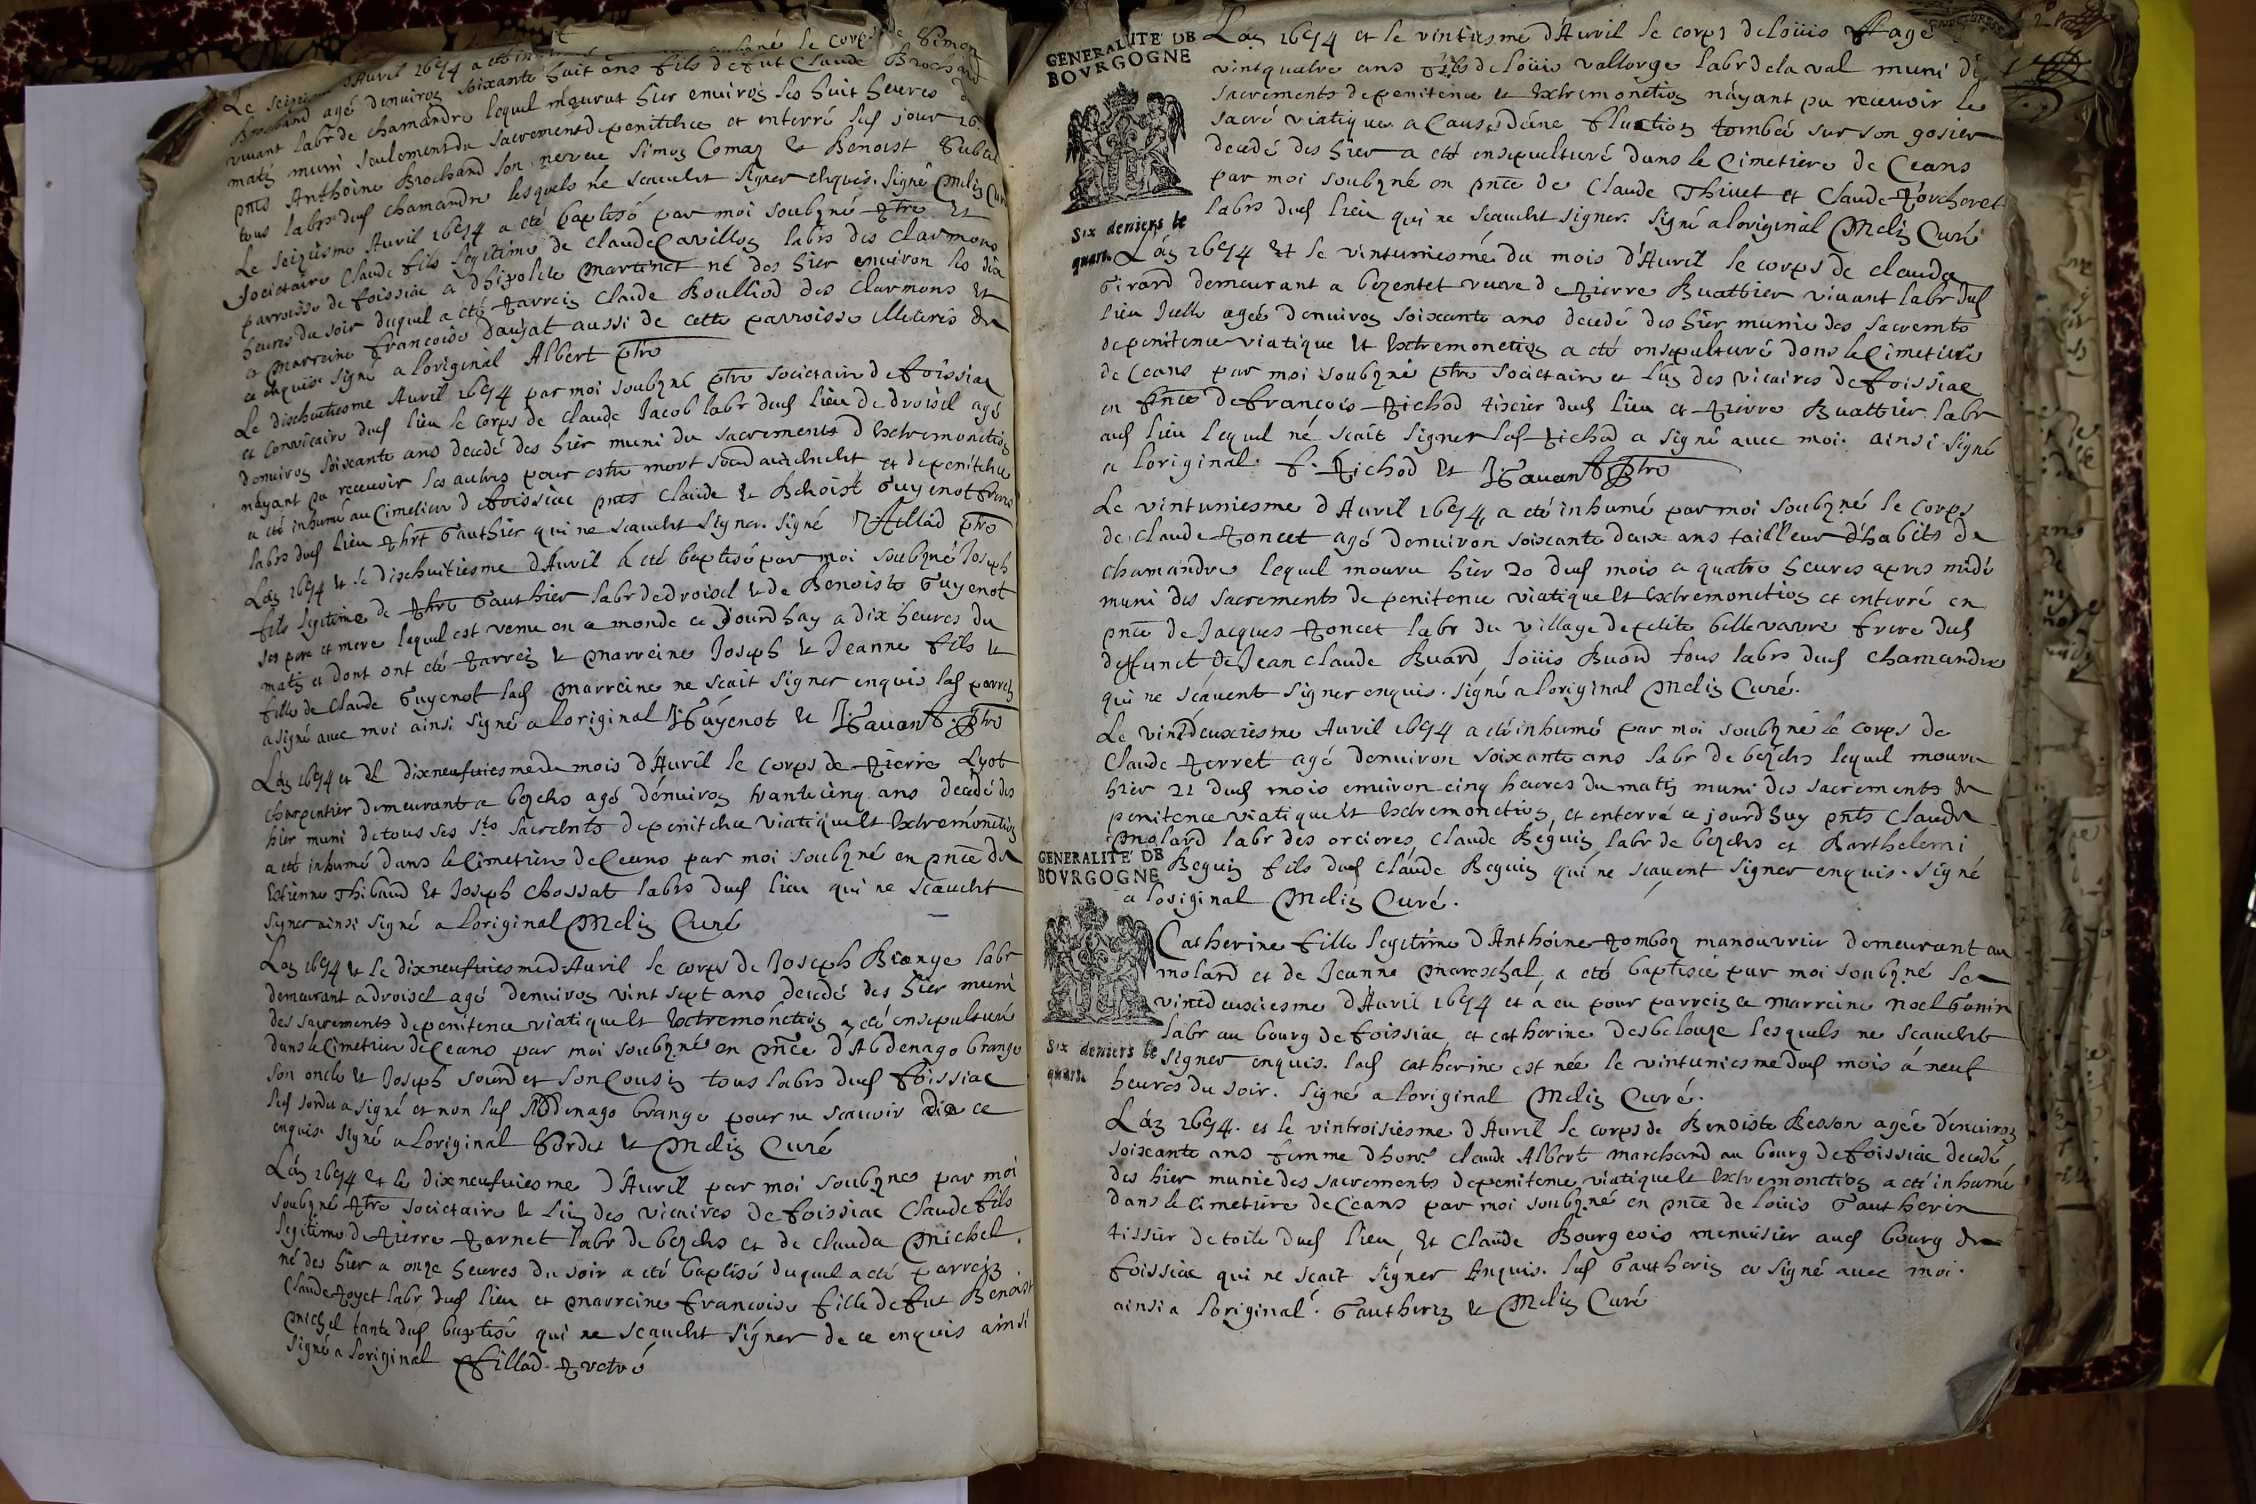 Le seiziesme d'Avril 1694 a eté inhumé le corps de Simon
Brochand agé denviron soixante huit ans fils defut Claude Brochand
vivant labr de chamandre lequel mourut hier environ les huit heures du
matin muni seulement du sacrement de penitence et enterré led jour 16
pnts Anthoine Brochand son neveu Simon Coman et Benoist
tous labrs dud chamandre lesquels ne scavent signer enquis. Signé Melin Curé
Le seiziesme Avril 1694 a eté baptisé par moi soubzné ptre et
societaire Claude fils legitime de Claude Cavillon labrs des Clarmons
parroisse de foissiac a d'hipolite Martinet né des hier environ les dix
heures du soir duquel a eté parrein Claude Boulliod des Clarmons et
a marreine francoise daujat aussi de cette parroisse illiterés de
ce enquis signé a loriginal Albert ptre
Le dixhuitiesme Avril 1694 par moi soubzné ptre societaire de foissiac
et convicaire dud lieu le corps de Claude Jacob labr dud lieu de droisel agé
denviron soixante ans decedé des hier muni du sacrements d Extremonction
nayant pu recevoir les autres pour estre mort et de penitence
a eté inhumé au Cimetiere de foissiac pnts Claude et Benoist Guyenot freres
labrs dud lieu phrt Gauthier qui ne scavent signer. Signé fillad ptre
Lan 1694 et le dixhuitiesme d'Avril a eté baptisé par moi soubzné Joseph
fils legitime de phrt Gauthier labr de droisel et de Benoiste Guyenot
ses pere et mere lequel est venu en ce monde ce Jourdhuy a dix heures du
matin et dont ont eté parrein et marreine Joseph et Jeanne fils et
fille de Claude Guyenot lad marreine ne scait signer enquis led parrein
a signé avec moi ainsi signé a loriginal J. Guyenot et J. Gavand ptre
Lan 1694 et le dixneufviesme du mois d'Avril le corps de pierre Lyot
charpentier demeurant a bezches agé denviron trante cinq ans decedé des
hier muni de tous ses sts sacrements de penitence viatique et Extremonction
a eté inhumé dans le Cimetiere de Ceans par moi soubzné en pnce de
Estienne Thibaud et Joseph Chossat labrs dud lieu qui ne scavent
signer ainsi signé a loriginal Melin Curé
Lan 1694 et le dixneufviesme d'Avril le corps de Joseph Brange labr
demeurant a droisel agé denviron vint sept ans decedé des hier muni
des sacrements de penitence viatique et Extremonction a eté ensepulturé
dans le Cimetiere de Ceans par moi soubzné en pnce d'Abdenago brange
son oncle et Joseph sourd et son Cousin tous labrs dud foissiac
led sordet a signé et non led Abdenago brange pour ne scavoir de ce
enquis signé a loriginal Sordet et Melin Curé
Lan 1694 et le dixneufviesme d'Avril par moi soubznes par moi
soubzné ptre societaire et l'un des vicaires de foissiac Claude fils
legitime de pierre parnet labr de bezches et de Clauda Michel
né des hier a onze heures du soir a eté baptisé duquel a eté parrein
Claude poyet labr dud lieu et marreine francoise fille de fut Benoist
michel tante dud baptisé qui ne scavent signer de ce enquis ainsi
signé a loriginal fillad. pretre
GENERALITE DE
BOVRGOGNE
Lan 1694 et le vintiesme d'Avril le corps de loüis agé
vintquatre ans fils de loüis vallorge labr de la val muni des
sacrements de penitence et Extremonction n'ayant pu recevoir le
sacré viatique a Cause d'une fluction tombée sur son gosier
decedé des hier a eté ensepulturé dans le Cimetiere de Ceans
par moi soubzné en pnce de Claude Thivet et Claude porcheret
labrs dud lieu qui ne scavent signer. Signé a loriginal Melin Curé
Six deniers le
quart.
Lan 1694 et le vintuniesme du mois d'Avril le corps de clauda
Girard demeurant a bezentet vuve de pierre Buattier vivant labr dud
lieu Icelle agée denviron soixante ans decedé des hier munie des sacremts
de penitence viatique et Extremonction a eté ensepulturé dans le Cimetiere
de Ceans par moi soubzné ptre societaire et l'un des vicaires de foissiac
en pnce de francois pichod tixier dud lieu et pierre Buattier labr
aud lieu lequel né scait signer led pichod a signé avec moi. ainsi signé
a loriginal. f. pichod et J. Gavand ptre
Le vintuniesme d'Avril 1694, a eté inhumé par moi soubzné le corps
de Claude poncet agé denviron soixante deux ans tailleur d'habits de
chamandre lequel mouru hier 20 dud mois a quatre heures apres midi
muni des sacrements de penitence viatique et Extremonction et enterré en
pnce de Jacques poncet labr du village de petite bellevavre frere dud
deffunct de Jean claude Buard, loüis Buard tous labrs dud chamandre
qui ne scavent signer enquis. signé a loriginal Melin Curé.
Le vintdeuxiesme Avril 1694 a eté inhumé par moi soubzné le corps de
Claude perret agé denviron soixante ans labr de bezches lequel mouru
hier 21 dud mois environ cinq heures du matin muni des sacrements de
penitence viatique et Extremonction, et enterré ce jourdhuy pnts Claude
molard labr des orcieres, Claude Beguin labr de bezches et Barthelemi
Beguin fils dud Claude Beguin qui ne scavent signer enquis. signé
a loriginal Melin Curé.
GENERALITE DE
BOVRGOGNE
Catherine fille legitime d'Anthoine pombon manouvrier demeurant au
molard et de Jeanne mareschal, a eté baptisée par moi soubzné le
vintdeuxiesme d'Avril 1694 et a eu pour parrein et marreine noel Gonin
labr au bourg de foissiac, et catherine desbelouze lesquels ne scavent
signer enquis. lad catherine est née le vintuniesme dud mois a neuf
heures du soir. signé a loriginal Melin Curé.
Six deniers le
quart.
Lan 1694. et le vintroisiesme d'Avril le corps de Benoiste Besson agée denviron
soixante ans femme d'hon. claude Albert marchand au bourg de foissiac decedé
des hier munie des sacrements de penitence viatique et Extremonction a eté inhumé
dans le cimetiere de Ceans par moi soubzné en pnce de loüis Gautherin
tissier de toile dud lieu, et Claude Bourgeois menuisier aud bourg de
foissiac qui ne scait signer Enquis. led Gautherin a signé avec moi.
ainsi a loriginal. Gautherin et Melin Curé